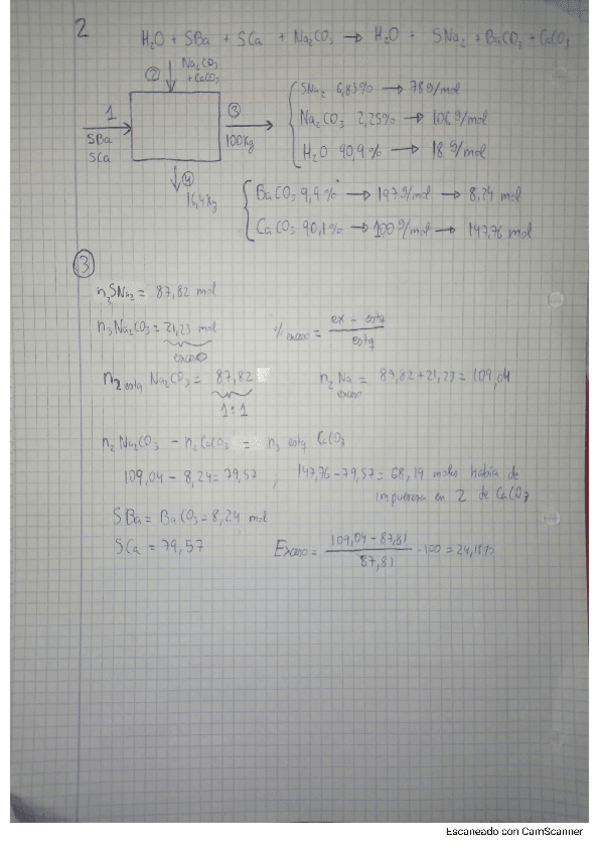 2
H2O + SBa + SCa + Na2CO3 → H2O + SNa2 + BaCO3 + CaCO3
② Na2CO3 + CaCO3
1
SBa
SCa
③
100Kg
SNa2 6,85% → 78 g/mol
Na2CO3 2,25% → 106 g/mol
H2O 90,9 % → 18 g/mol
④
16,4Kg
BaCO3 9,9 % → 197 g/mol → 8,24 mol
CaCO3 90,1% → 100 g/mol → 147,76 mol
③
n3SNa2 = 87,82 mol
n3Na2CO3 = 21,23 mol
exceso
% exceso = ex - esta / estq
n2 estq Na2CO3 = 87,82
1:1
n2 Na exceso = 87,82 + 21,23 = 109,04
n2 Na2CO3 - n2 CaCO3 = n3 estq CaCO3
109,04 - 8,24 = 79,57 ; 147,76 - 79,57 = 68,19 moles había de
impureza en 2 de CaCO3
SBa = BaCO3 = 8,24 mol
SCa = 79,57
Exceso = 109,04 - 87,81 / 87,81 · 100 = 24,18%
Escaneado con CamScanner